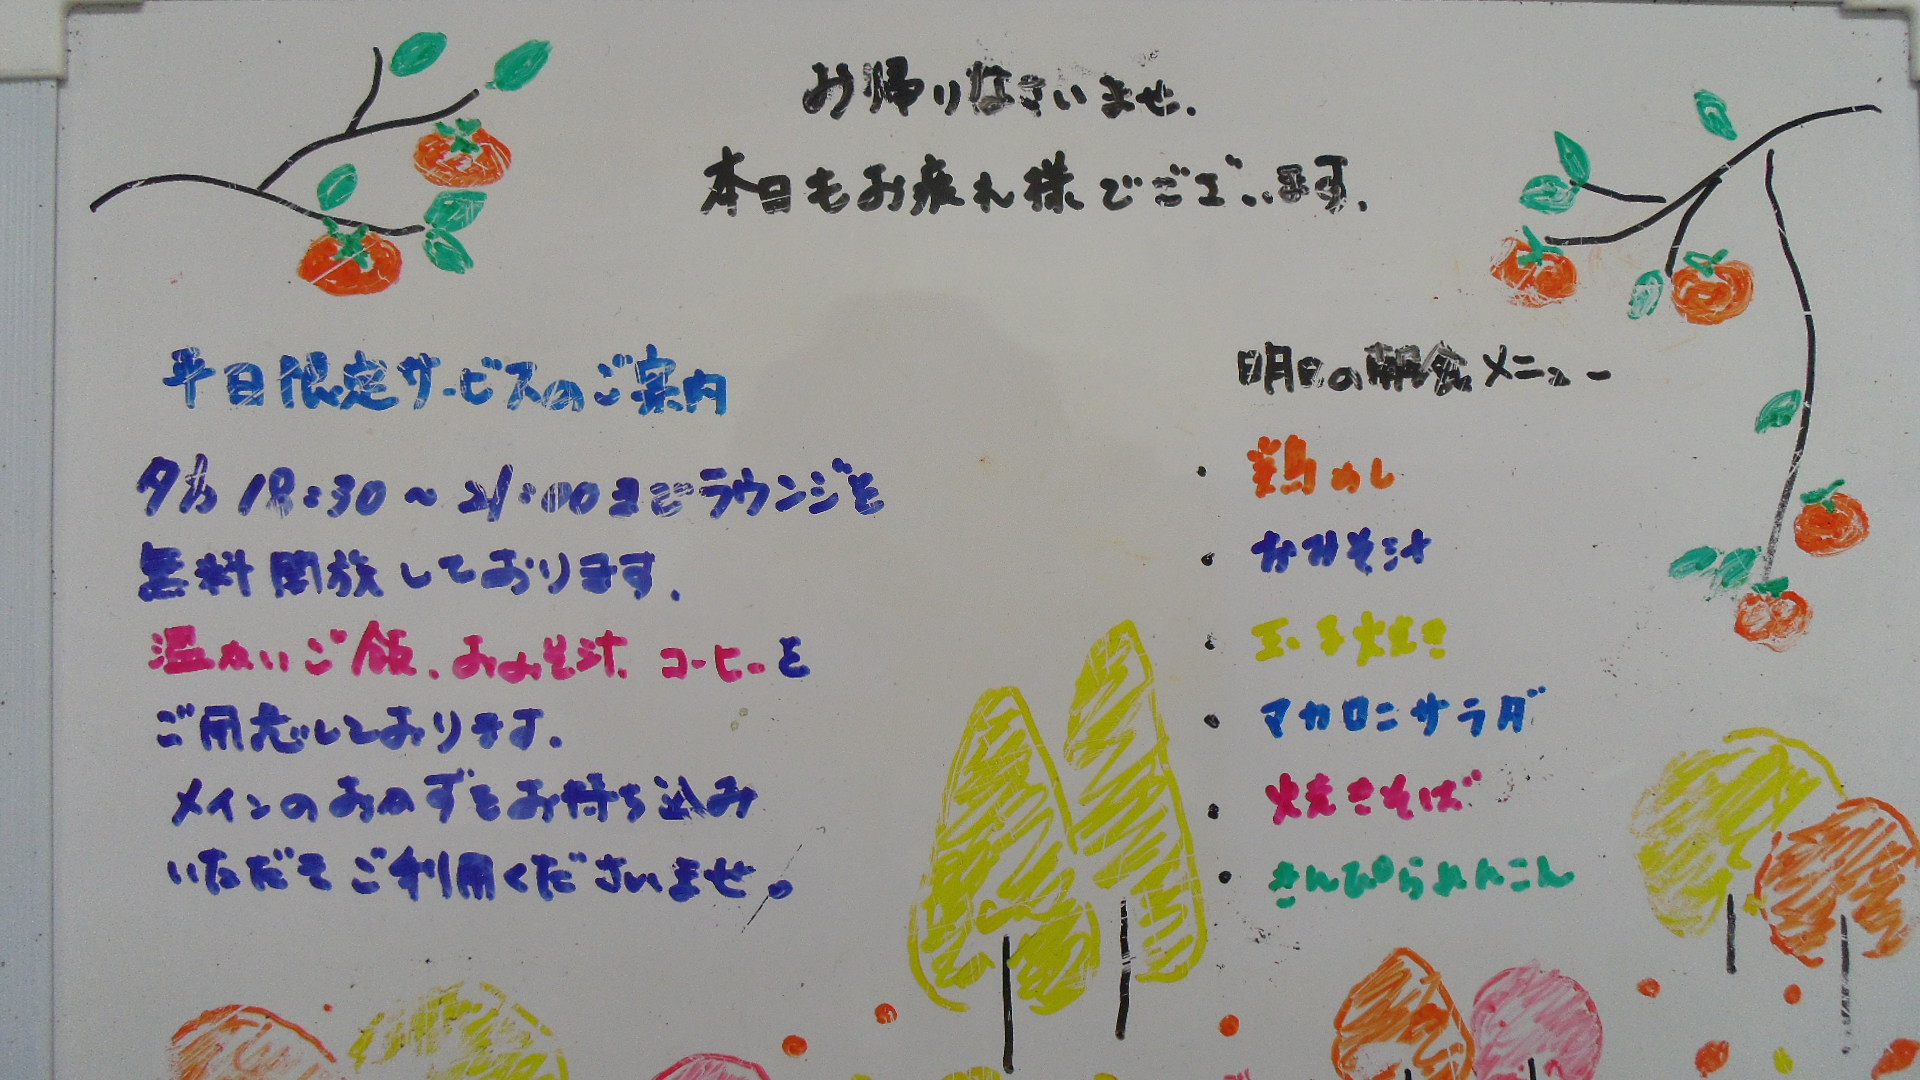 お帰りなさいませ.
本日もお疲れ様でございます.
平日限定サービスのご案内
夕方 18:30 ~ 21:00までラウンジを
無料開放しております.
温かいご飯、おみそ汁、コーヒーを
ご用意しております.
メインのおかずをお持ち込み
いただきご利用くださいませ。
明日の朝食メニュー
・ 鶏めし
・ おみそ汁
・ 玉子焼き
・ マカロニサラダ
・ 焼きそば
・ きんぴられんこん